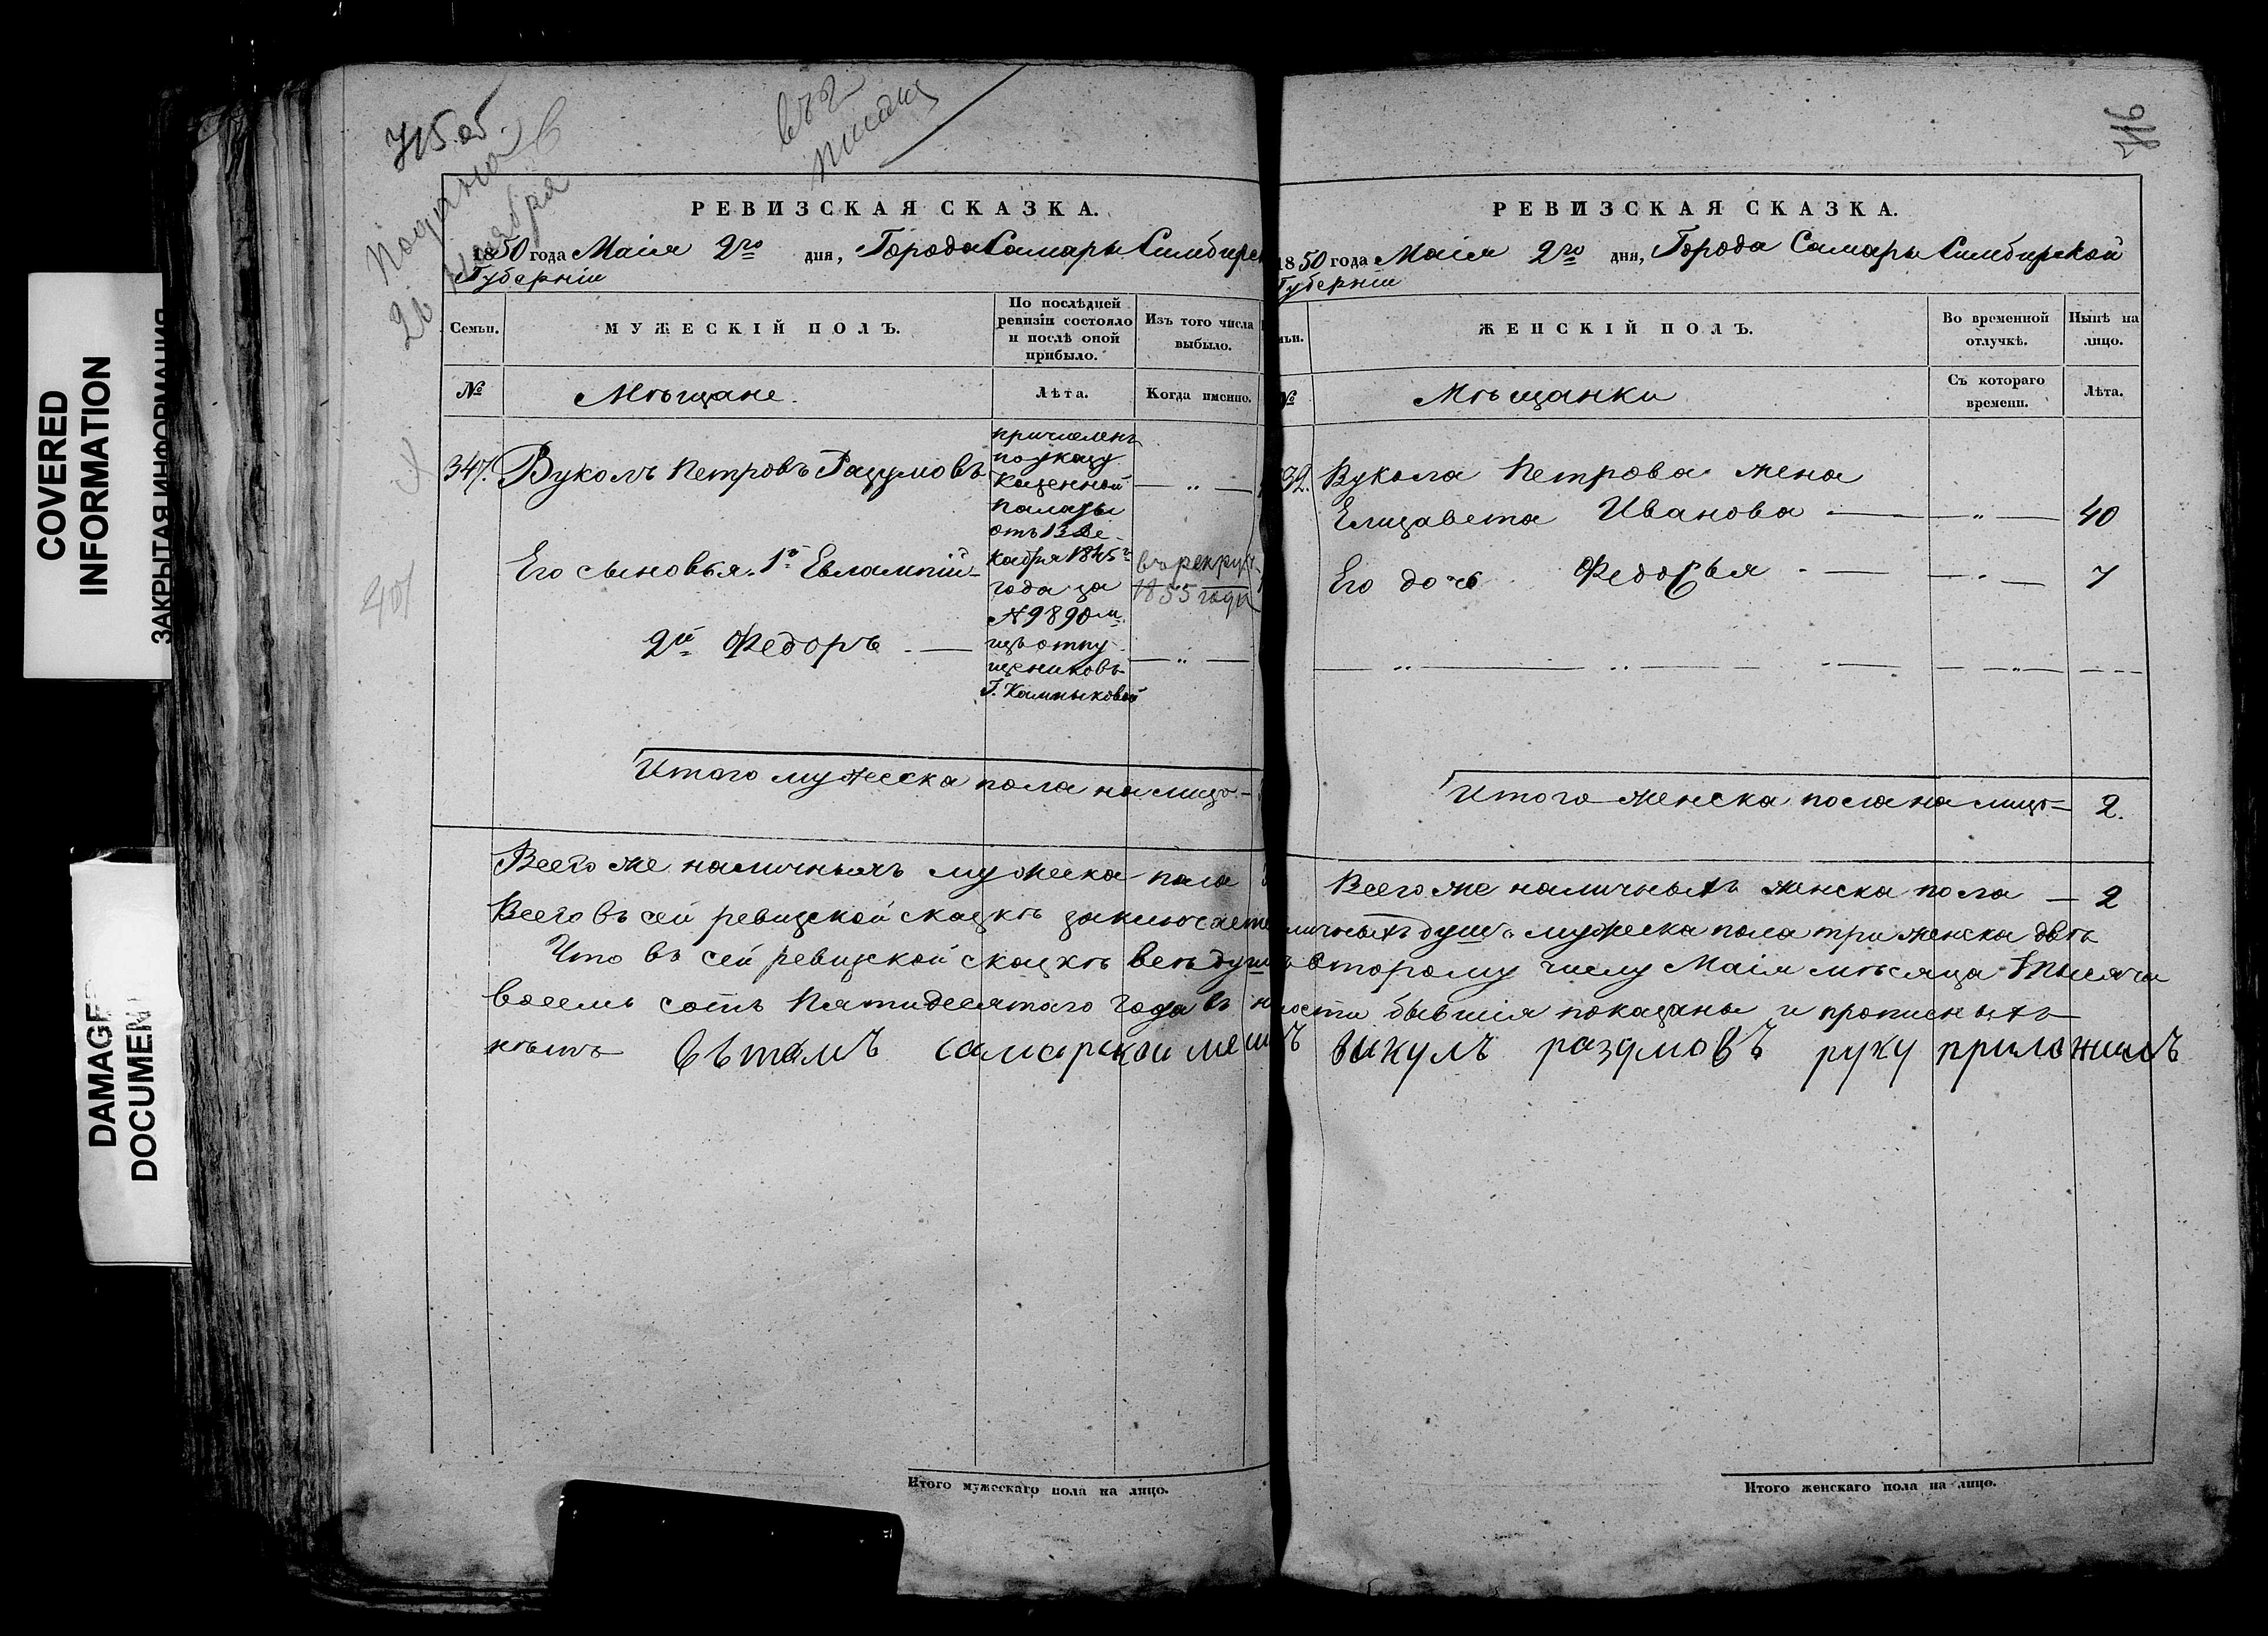 COVERED
INFORMATION
ЗАКРЫТАЯ ИНФОРМАЦИЯ
DAMAGE
DOCUMEN
715 об.
ноября
РЕВИЗСКАЯ СКАЗКА.
1850 года Маія 2го дня, Города Самары Симбирс
Губерніи
Семьи.
МУЖЕСКІЙ ПОЛЪ.
По послѣдней
ревизіи состояло
и послѣ оной
прибыло.
Изъ того числа
выбыло.
№
Мѣщане.
Лѣта.
Когда именно.
347.
Вуколъ Петровъ Разумовъ
Его сыновья. 1й Евлампій
2й Федоръ
причисленъ
по указу
Казенной
Палаты
отъ 13 Де-
кабря 1845го
года за
№ 9890 м
изъ отпу-
щениковъ
въ рекрут
1855 года
Итого мужеска пола на лицо
Всего же наличныхъ мужеска пола
Всего въ сей ревизской сказкѣ заключаетс
Что въ сей ревизской сказкѣ всѣ души
восемь сотъ Пятидесятаго года въ н
нѣтъ вътомъ самарской мещ
Итого мужескаго пола на лицо.
716
РЕВИЗСКАЯ СКАЗКА.
1850 года Маія 2го дня, Города Самары Симбирской
Губерніи
ьи.
ЖЕНСКІЙ ПОЛЪ.
Во временной
отлучкѣ.
Нынѣ на
лицо.
№
Мѣщанки
Съ котораго
времени.
Лѣта.
Вукола Петрова жена
Елизавета Иванова 40
Его дочь Федосья 7
Итого женска пола на лицо 2.
Всего же наличныхъ женска пола 2
личныхъ душъ мужеска пола три женска двѣ
второму числу Маія мѣсяца тысяча
ности бывшія показаны и прописныхъ
викулъ разумовъ руку приложилъ
Итого женскаго пола на лицо.